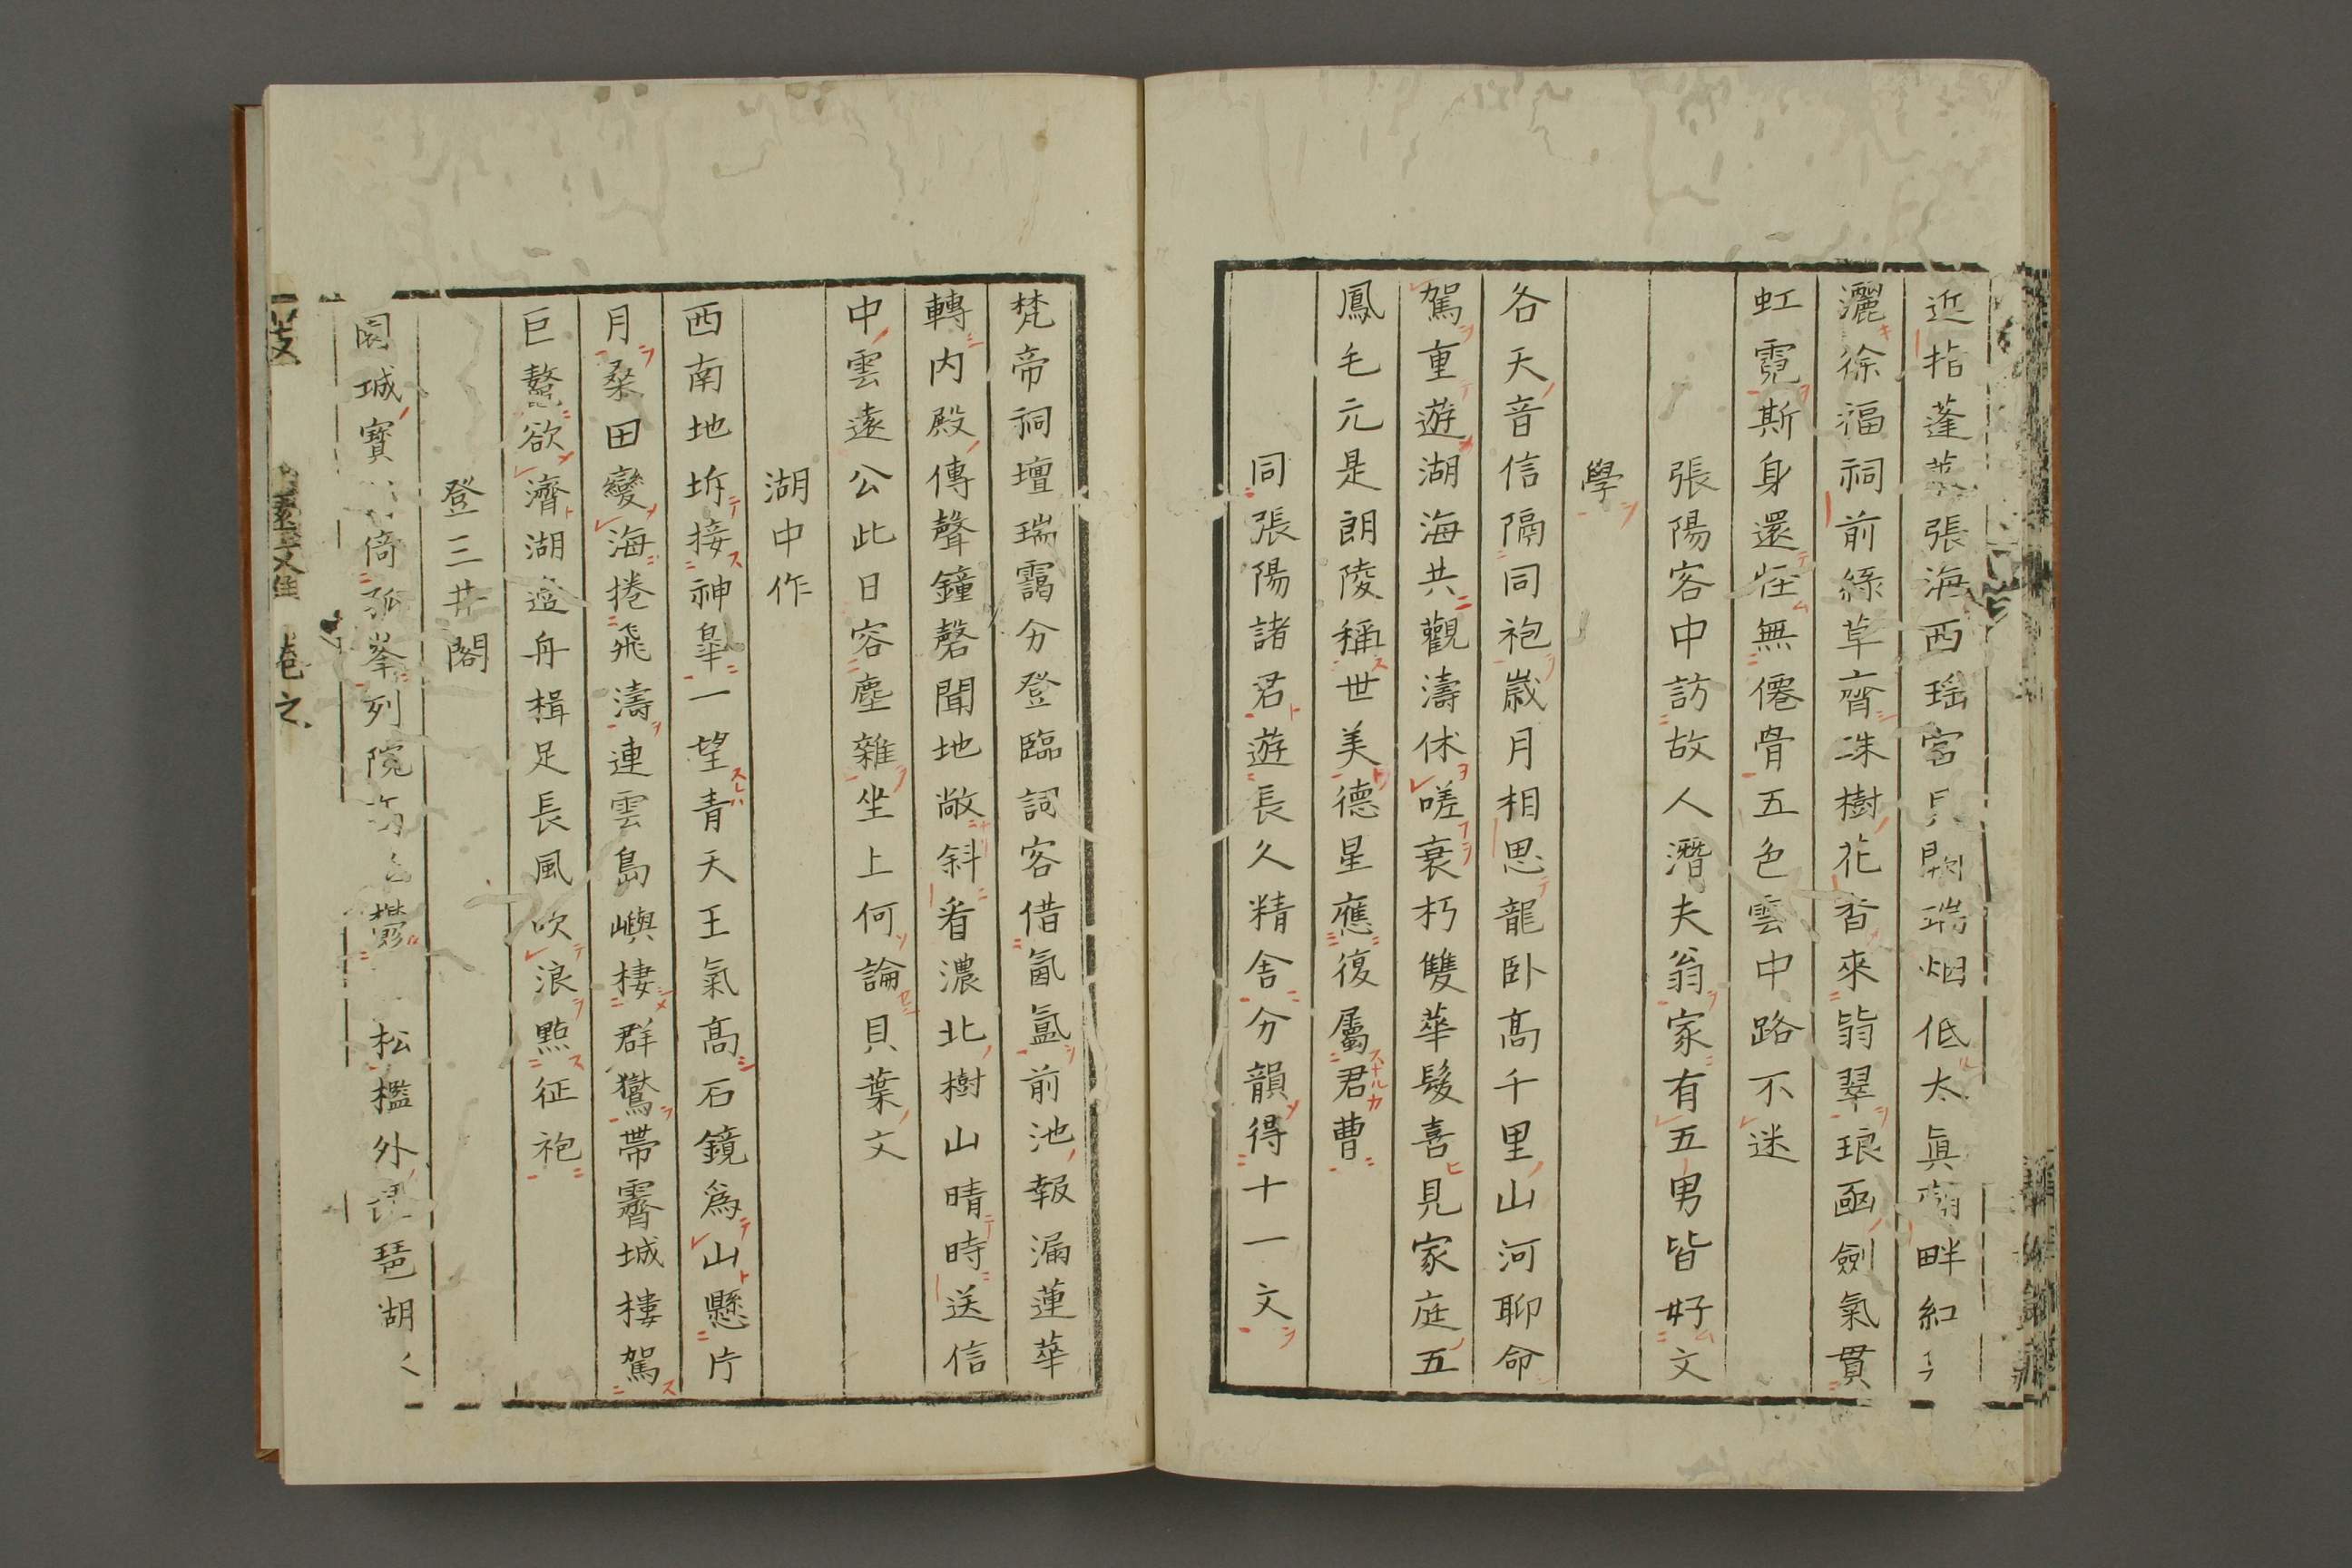 近指蓬萊張海西瑤宮貝闕瑞烟低太真廟畔紅
灑徐福祠前綠草齊洙樹花香來翡翠琅函劍氣貫
虹霓斯身還在無僊骨五色雲中路不迷
張陽客中訪故人潛夫翁家有五男皆好文
學
各天音信隔同袍歲月相思龍臥高千里山河聊命
駕重遊湖海共觀濤休嗟衰朽雙華髮喜見家庭五
鳳毛元是朗陵稱世美德星應復屬君曹
同張陽諸君遊長久精舍分韻得十一文
梵帝祠壇瑞靄分登臨詞客借氤氳前池報漏蓮華
轉內殿傳聲鐘磬聞地敞斜看濃北樹山晴時送信
中雲遠公此日容塵雜坐上何論貝葉文
湖中作
西南地坼接神皐一望青天王氣高石鏡為山懸片
月桑田變海捲飛濤連雲島嶼棲群鶯帶霽城樓駕
巨鼇欲濟湖邊舟楫足長風吹浪點征袍
登三井閣
園城寶倚孤峯列院松檻外琵琶湖
卷之